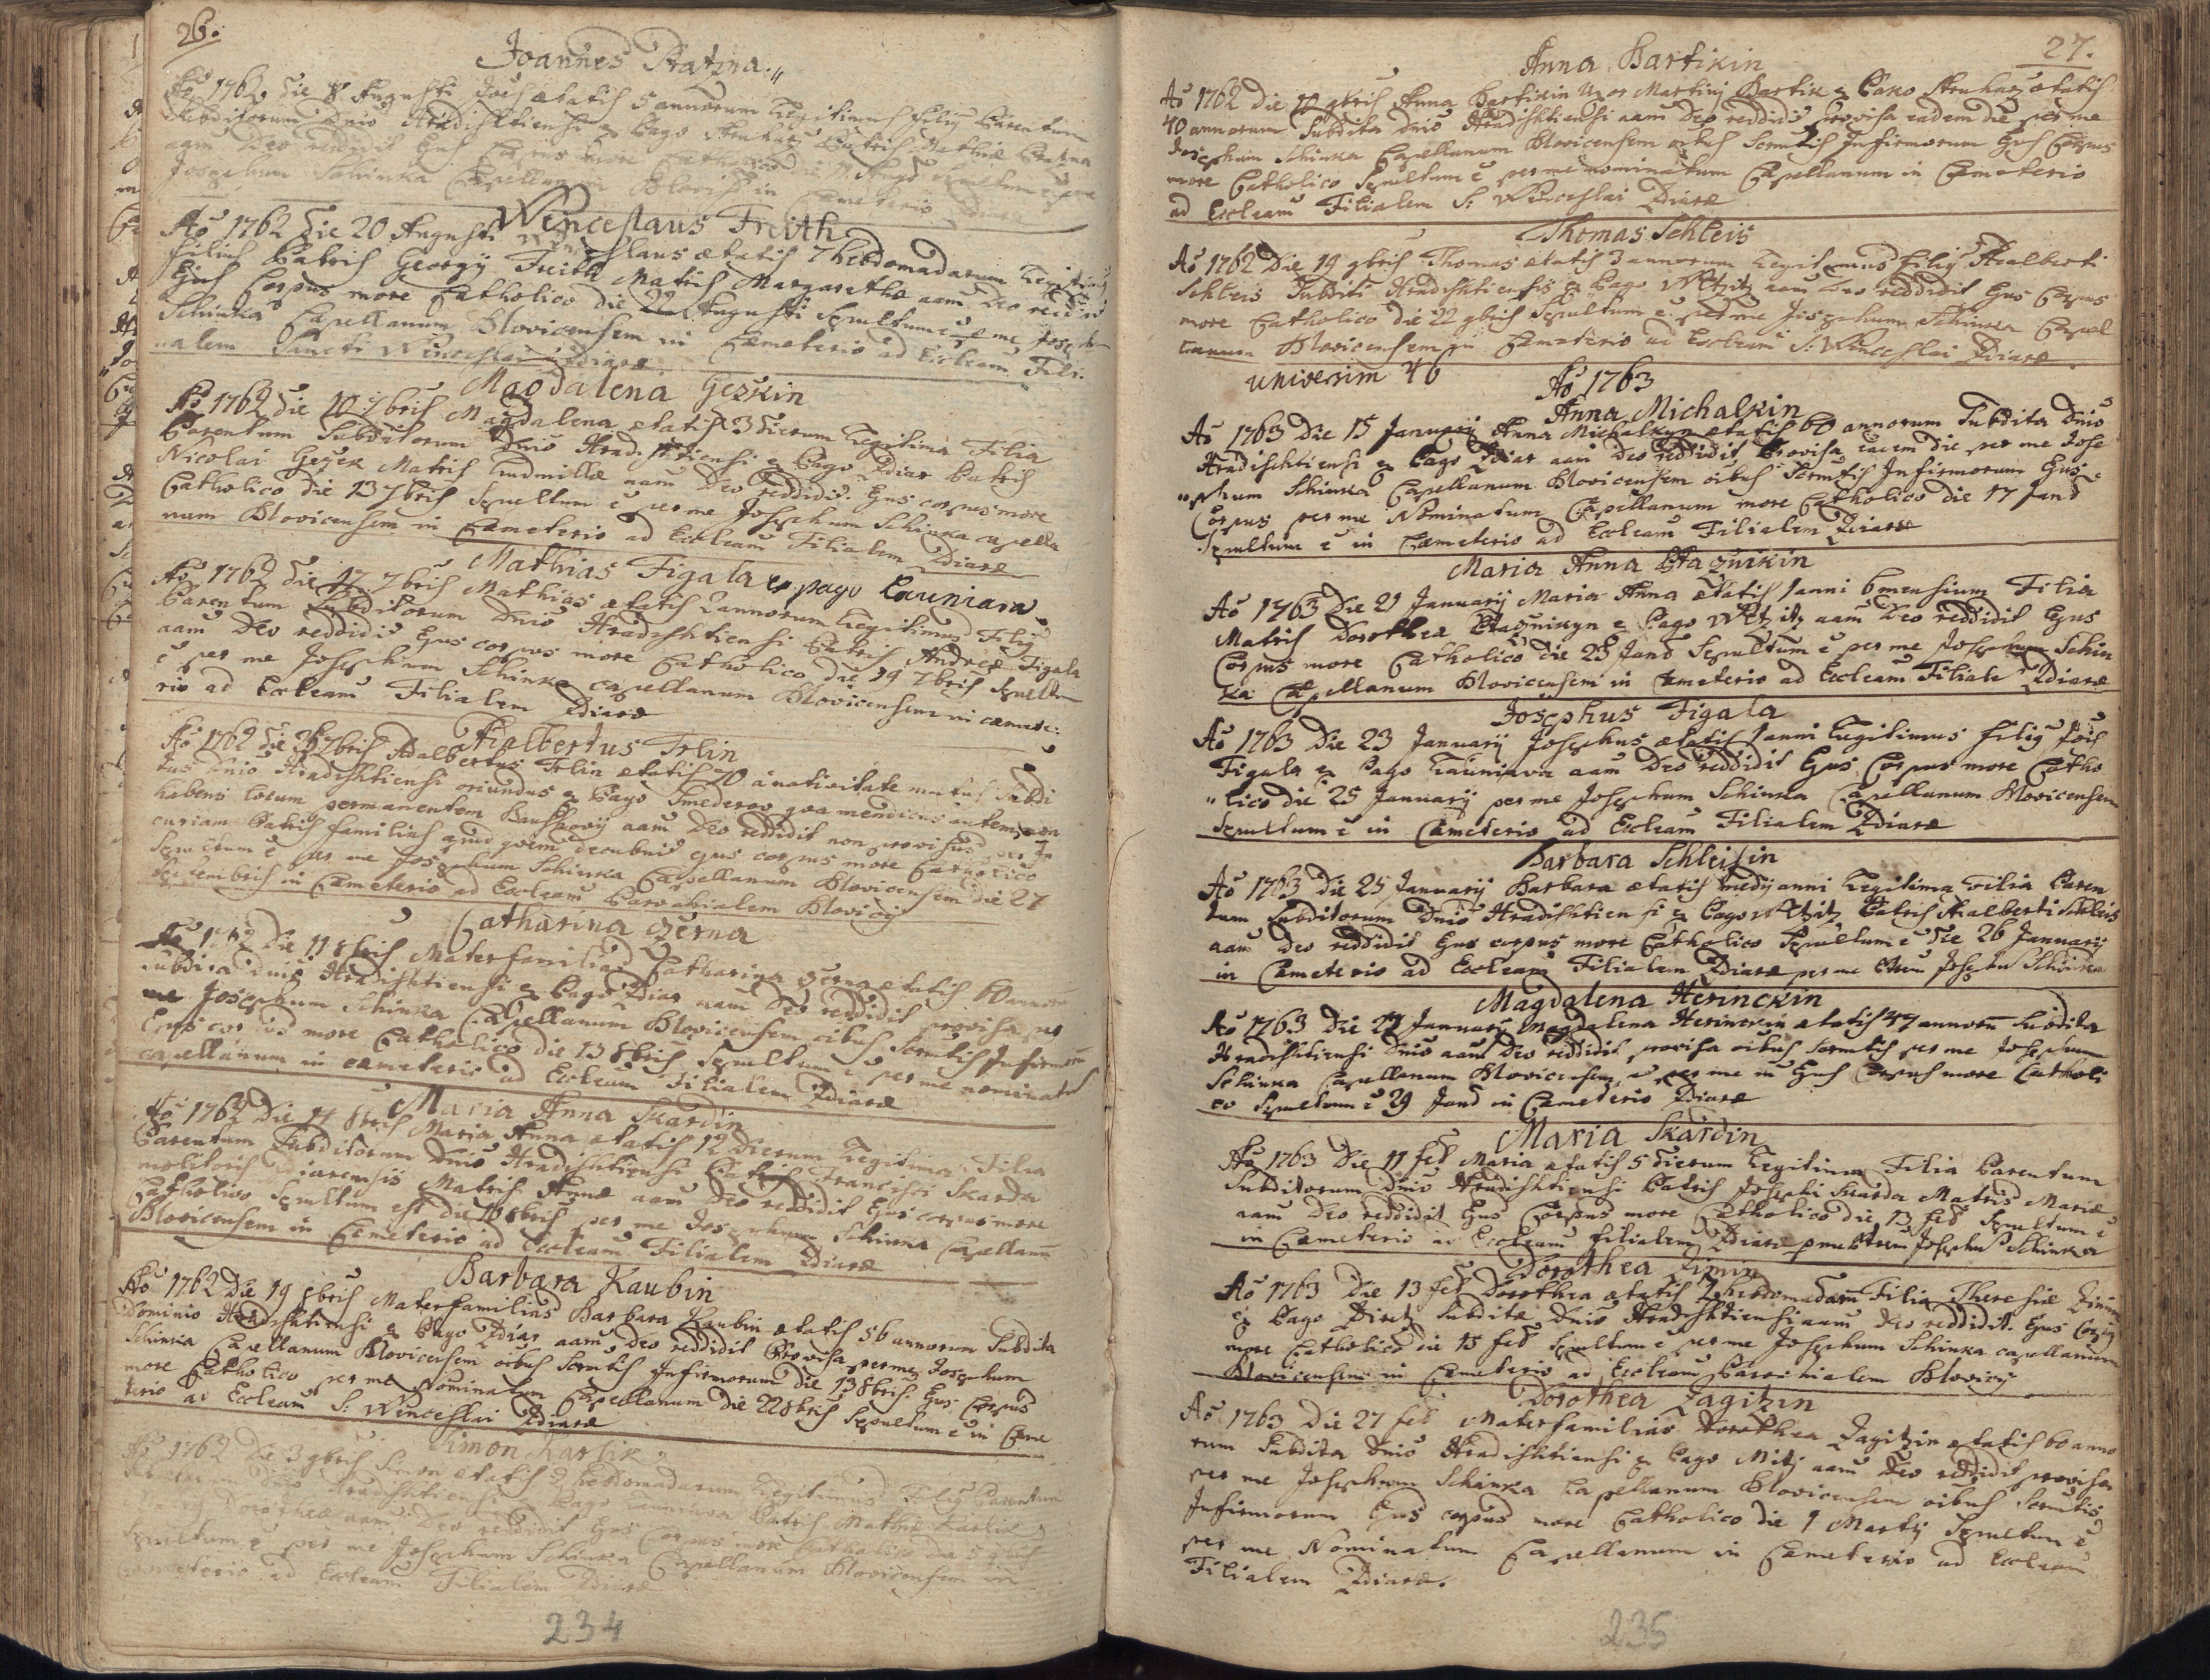 26.
Joannes Pratzna.
Aō 1762 die 8 Augusti Joēs ætatis 5 annorum Legitimus Filiꝯ Parentum
Subditorum Dnio Hradishtiensi ex Pago Patris Mathiæ
aam Deo reddidit Ejus Corpus more Catholico die Sepultum
Josephum Schinka Capellanum in Cæmeterio
Wenceslaus Freith
Aō 1762 die 20 Augusti Wenceslaus ætatis 7 hebdomadarum Legitimus
Filius Patris Georgij Freith Matris Margarethæ aam Deo reddidit
Ejus Corpus more Catholico die 22 Augusti Sepultum ē per me Josephum
Schinka Capellanum Blovicensem in Cæmeterio ad Eccleam Fili-
alem Sancti Wenceslai Zdiaræ
Magdalena Gezkin
Aō 1762 die 10 7bris Magdalena ætatis 3 dierum Legitima Filia
Parentum Subditorum Dnio Hradishtiensi ex Pago Zdiar Patris
Nicolai Gezek Matris Ludmillæ aam Deo reddidit. Ejus corpus more
Catholico die 13 7bris Sepultum ē per me Josephum Schinka capella
num Blovicensem in Cæmeterio ad Eccleam Filialem Zdiaræ
Mathias Figala ex pago Launiava
Aō 1762 die 17 7bris Mathias ætatis 2 annorum Legitimus Filiꝯ
Parentum Subditorum Dnio Hradishtiensi Patris Andreæ Figala
aam Deo reddidit Ejus corpus more Catholico die 19 7bris Sepultum
ē per me Josephum Schinka capellanum Blovicensem in cæmete-
rio ad Eccleam Filialem Zdiaræ
Adalbertus Trlin
Aō 1762 die 26 7bris Adalbertus Trlin ætatis 70 a nativitate mutus Subdi
tus Dnio Hradishtiensi oriundus ex Pago Smederov qua mendicus autem non
habens locum permanentem aam Deo reddidit non provisus
curiam Patris familias apud quem decubuit ejus corpus more Catholico
Sepultum ē per me Josephum Schinka Capellanum Blovicensem die 27
Septembris in Cæmeterio ad Eccleam Parochialem Blovicij
Catharina Czerna
Aō 1762 Die 11 8bris Materfamilias Catharina Czerna ætatis 60 annorum
Subdita Dnio Hradishtiensi ex Pago Zdiar aam Deo reddidit provisa per
me Josephum Schinka Capellanum Blovicensem oibus Scrmtis Infirmorum
Ejus corpus more Catholico die 13 8bris Sepultum ē per me nominatum
capellanum in cæmeterio ad Eccleam Filialem Zdiaræ
Maria Anna Skardin
Aō 1762 Die 14 8bris Maria Anna ætatis 12 Dierum Legitima Filia
Parentum Subditorum Dnio Hradishtiensi Patris Francisci Skarda
molitoris Zdiarensis Matris Annæ aam Deo reddidit Ejus corpus more
Catholico Sepultum est die 16 8bris per me Josephum Schinka Capellanum
Blovicensem in Cæmeterio ad Eccleam Filialem Zdiaræ
Barbara Kaubin
Aō 1762 Die 19 8bris Materfamilias Barbara Kaubin ætatis 56 annorum Subdita
Dominio Hradishtiensi ex Pago Zdiar aam Deo reddidit Provisa per me Josephum
Schinka Capellanum Blovicensem oibus Scrmtis Infirmorum die 13 8bris. Ejus Corpus
more Catholico per me Nominatum Capellanum die 22 8bris Sepultum ē in Cæme
terio ad Eccleam S: Winceslai Zdiaræ
Simon Kartik
Aō 1762 Die 3 9bris Simon ætatis 2 hebdomadarum Legitimus Filiꝯ Parentum
Subditorum Dnio Hradishtiensi ex Pago Launiava Patris Mathiæ Kartik
Matris Dorotheæ aam Deo reddidit Ejus Corpus more Catholico die 5 9bris
Sepultum ē per me Josephum Schinka Capellanum Blovicensem in
Cæmeterio ad Eccleam Filialem Zdiaræ
234
27.
Anna Bartikin
Aō 1762 die 10 9bris Anna Bartikin Uxor Martini Bartik ex Pago ætatis
40 annorum Subdita Dnio Hradishtiensi aam Deo reddidit Provisa eadem die per me
Josephum Schinka Capellanum Blovicensem oibus Scrmtis Infirmorum Ejus Corpus
more Catholico Sepultum ē per me nominatum Capellanum in Cæmeterio
ad Eccleam Filialem S: Winceslai Zdiaræ
Thomas Schleis
Aō 1762 Die 19 9bris Thomas ætatis 3 annorum Legitimus Filiꝯ Adalberti
Schleis Subditi Hradishtiensis ex Pago Wltzitz aam Deo reddidit Ejus Corpus
more Catholico die 22 9bris Sepultum ē per me Josephum Schinka Capel
lanum Blovicensem in Cæmeterio ad Eccleam S: Winceslai Zdiaræ
universim 46
Aō 1763
Anna Michalkin
Aō 1763 Die 15 Januarij Anna Michalkyn ætatis 60 annorum Subdita Dnio
Hradischtiensi ex Pago Zdiar aam Deo reddidit Provisa eadem die per me Jose
"phum Schinka Capellanum Blovicensem oibus Scrmtis Infirmorum Ejus
Corpus per me Nominatum Capellanum more Catholico die 17 Janū
Sepultum ē in Cæmeterio ad Eccleam Filialem Zdiaræ
Maria Anna Ptaznikin
Aō 1763 Die 21 Januarij Maria Anna ætatis 1 anni 6 mensium Filia
Matris Dorothea Ptaznikyn ex Pago Wltzitz aam Deo reddidit Ejus
Corpus more Catholico die 23 Janū Sepultum ē per me Josephum Schin
ka Capellanum Blovicensem in Cæmeterio ad Eccleam Filiale Zdiaræ
Josephus Figala
Aō 1763 Die 23 Januarij Josephus ætatis 1 anni Legitimus filiꝯ Joīs
Figala ex Pago Launiava aam Deo reddidit Ejus Corpus more Catho
"lico die 25 Januarij per me Josephum Schinka Capellanum Blovicensem
Sepultum ē in Cæmeterio ad Eccleam Filialem Zdiaræ
Barbara Schleisin
Aō 1763 Die 25 Januarij Barbara ætatis medij anni Legitima Filia Paren
tum Subditorum Dnio Hradishtiensi ex Pago Wltzitz Patris Adalberti Schleis
aam Deo reddidit Ejus corpus more Catholico Sepultum ē die 26 Januarij
in Cæmeterio ad Eccleam Filialem Zdiaræ per me Josephū Schinka
Magdalena Herinckin
Aō 1763 Die 27 Januarij Magdalena Herinckin ætatis 47 annorū Subdita
Hradishtiensi Dnio aam Deo reddidit provisa oibus Scrmtis per me Josephum
Schinka Capellanum Blovicensem, per me in Ejus Corpus more Catholi
co Sepultum ē 29 Janū in Cæmeterio Zdiaræ
Maria Skardin
Aō 1763 Die 11 feb Maria ætatis 5 dierum Legitima Filia Parentum
Subditorum Dnio Hradishtiensi Patris Josephi Skarda Matris Mariæ
aam Deo reddidit Ejus Corpus more Catholico die 13 feb Sepultum ē
in Cæmeterio ad Eccleam filialem Zdiaræ Josephū Schinka
Dorothea Zimin
Aō 1763 Die 13 feb Dorothea ætatis 2 hebdomadarū Filia Theresiæ Zimin
ex Pago Subditæ Dnio Hradishtiensi aam Deo reddidit. Ejus Corpus
more Catholico die 15 feb Sepultum ē per me Josephum Schinka capellanum
Blovicensem in Cæmeterio ad Eccleam Parochialem Blovicij
Dorothea Zagitzin
Aō 1763 Die 27 feb Materfamilias Dorothea Zagitzin ætatis 60 anno
rum Subdita Dnio Hradishtiensi ex Pago Mitz aam Deo reddidit provisa
per me Josephum Schinka Capellanum Blovicensem oibus Scrmtis
Infirmorum Ejus corpus more Catholico die 1 Martij Sepultum ē
per me Nominatum Capellanum in Cæmeterio ad Eccleam
Filialem Zdiaræ.
235